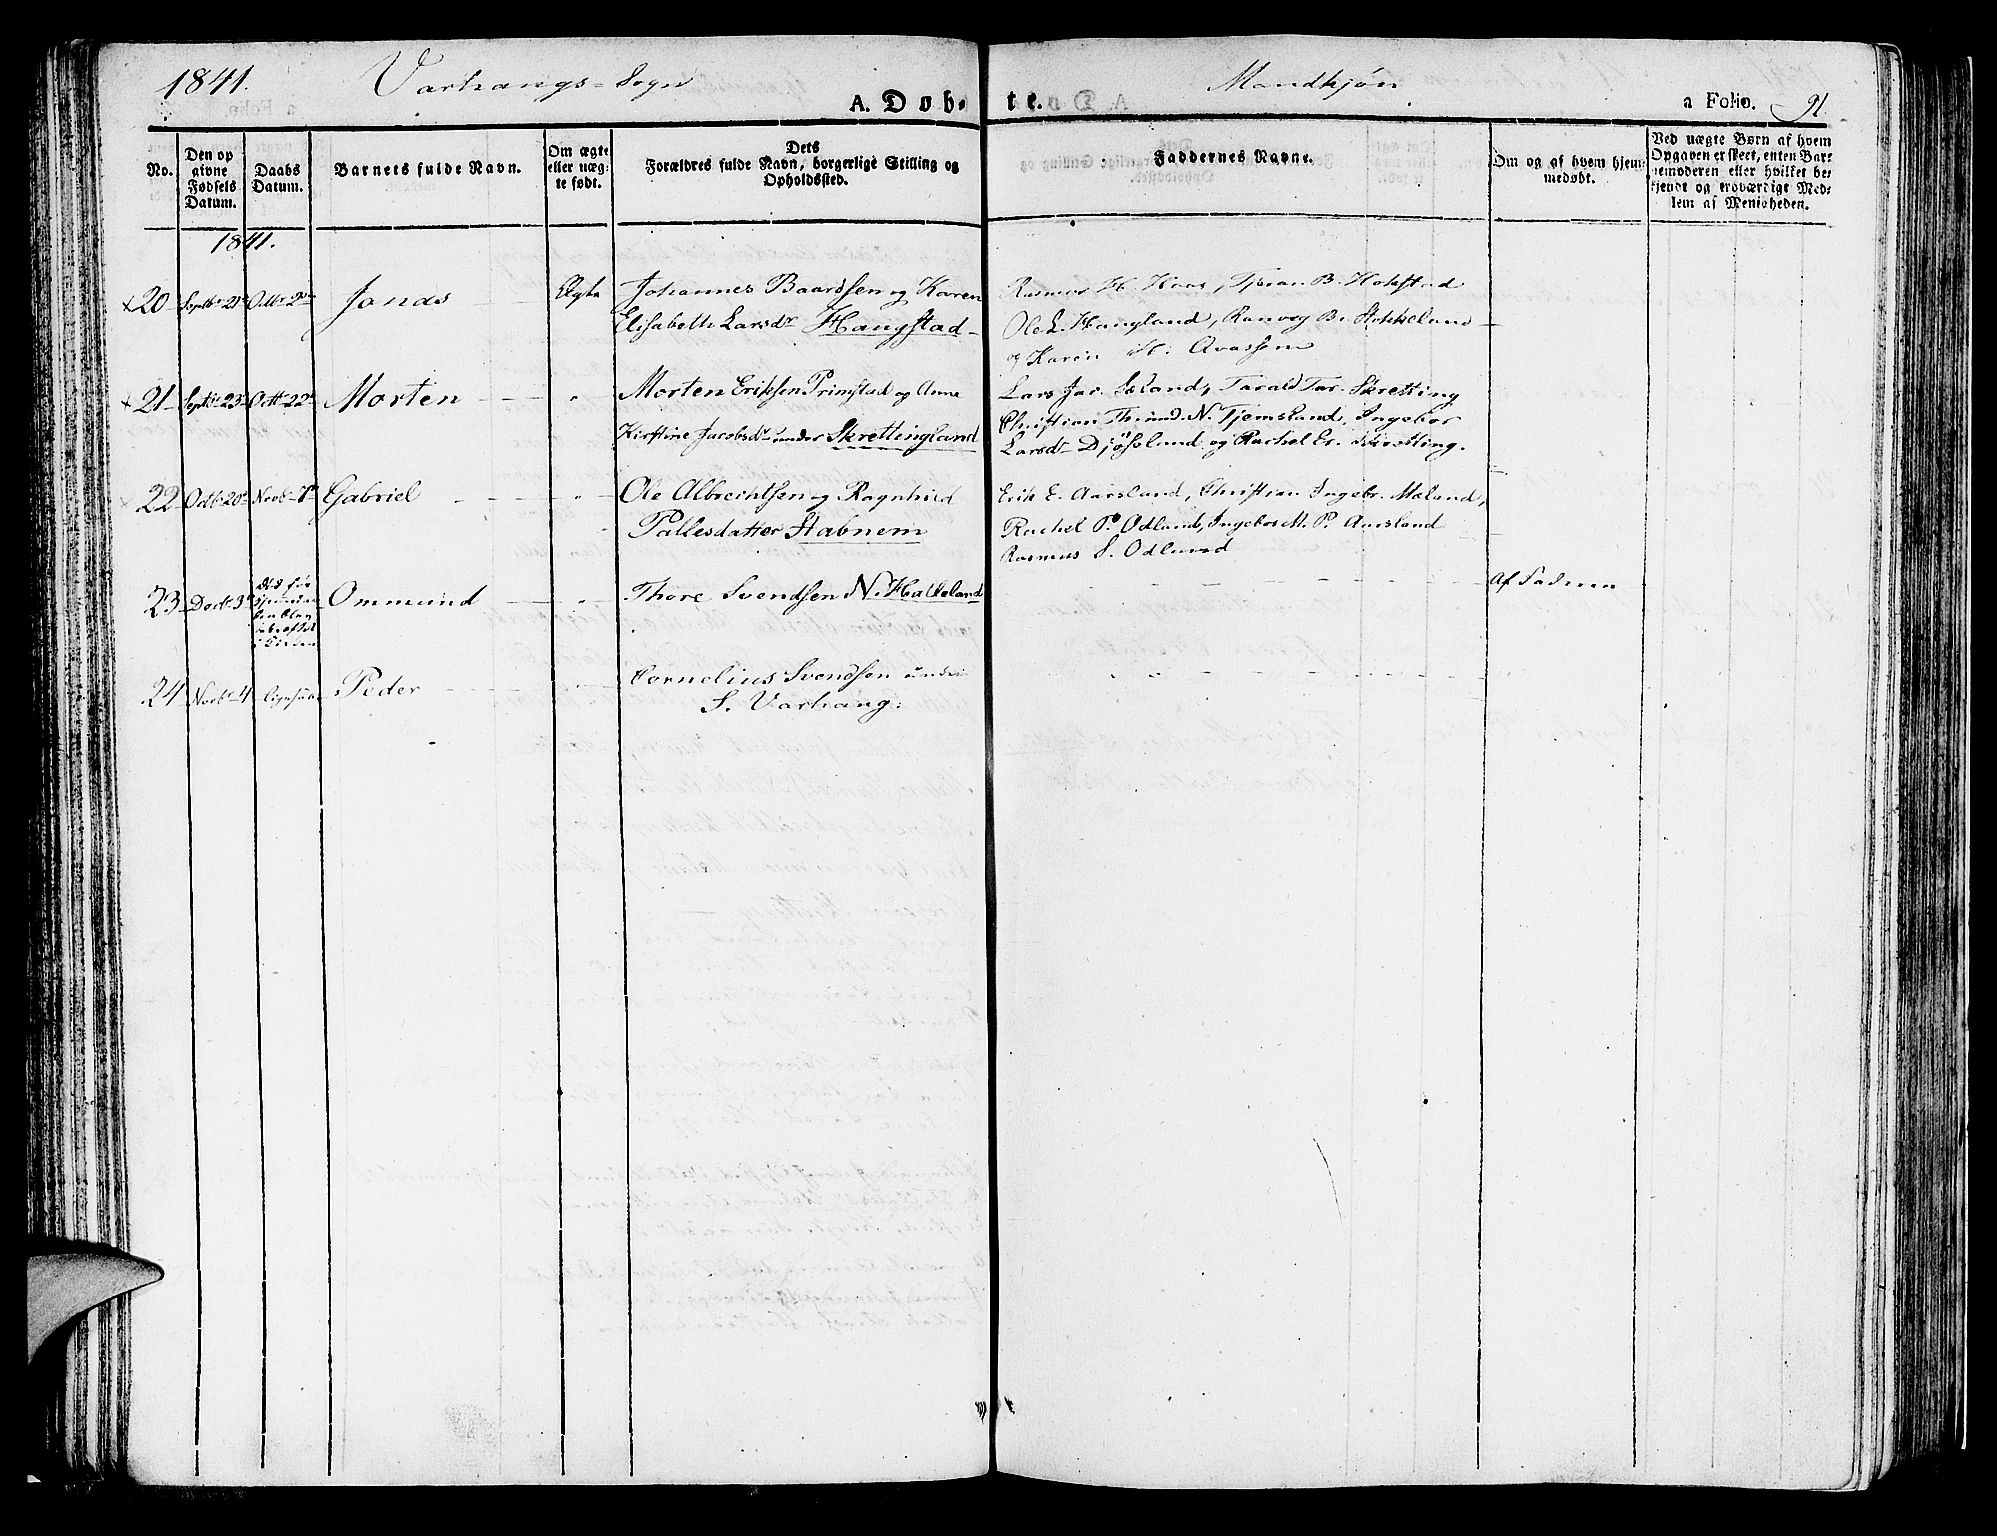 1841. Varhaugs-Sogn
A. Døb- te. Mandkjøn a Folio. 91.
No.
Den op
givne
Fødsels
Datum.
Daabs
Datum.
Barnets fulde Navn.
Om ægte
eller uæg-
te født.
Dets
Forældres fulde Navn, borgerlige Stilling og
Opholdssted.
Faddernes Navne.
Om og af hvem hjem-
medøbt.
Ved uægte Børn af hvem
Opgaven er skeet, enten Bar-
nemoderen eller hvilket be-
kjendt og troværdigt Med-
lem af Menigheden.
1841.
20 Septbr 21 Octbr Jonas Ægte Johannes Baardsen og Karen
Elisabeth Larsdr Haugstad
Rasmus H. Haar, B. Hohstad
Ole L. Haugland, Ranveg B. Stokkeland
og Karen
21 Septbr 23 Octbr 22 Morten " Morten Eriksen Primstad og Anne
Kirstine Jacobsdr under Skrettingland
Lars Jac. Island, Tarald Tar. Skretting
Christian N. Tjemsland, Ingebor
Larsdr Djøsland og Rachel Er. Skretting.
22 Octb 20 Novb 7 Gabriel " Ole Albrechtsen og Ragnhild
Pallesdatter Stabnem
Erik E. Aarsland, Christian Ingebr. Maland,
Rachel P. Odland, Ingebor M. P. Aarsland
Rasmus S. Odland
23 Decb 3 Ommund " Thore Svendsen N. Hatleland
Af Faderen
24 Novb 4 Ligesaa Peder Cornelius Svendsen under
S. Varhaug.